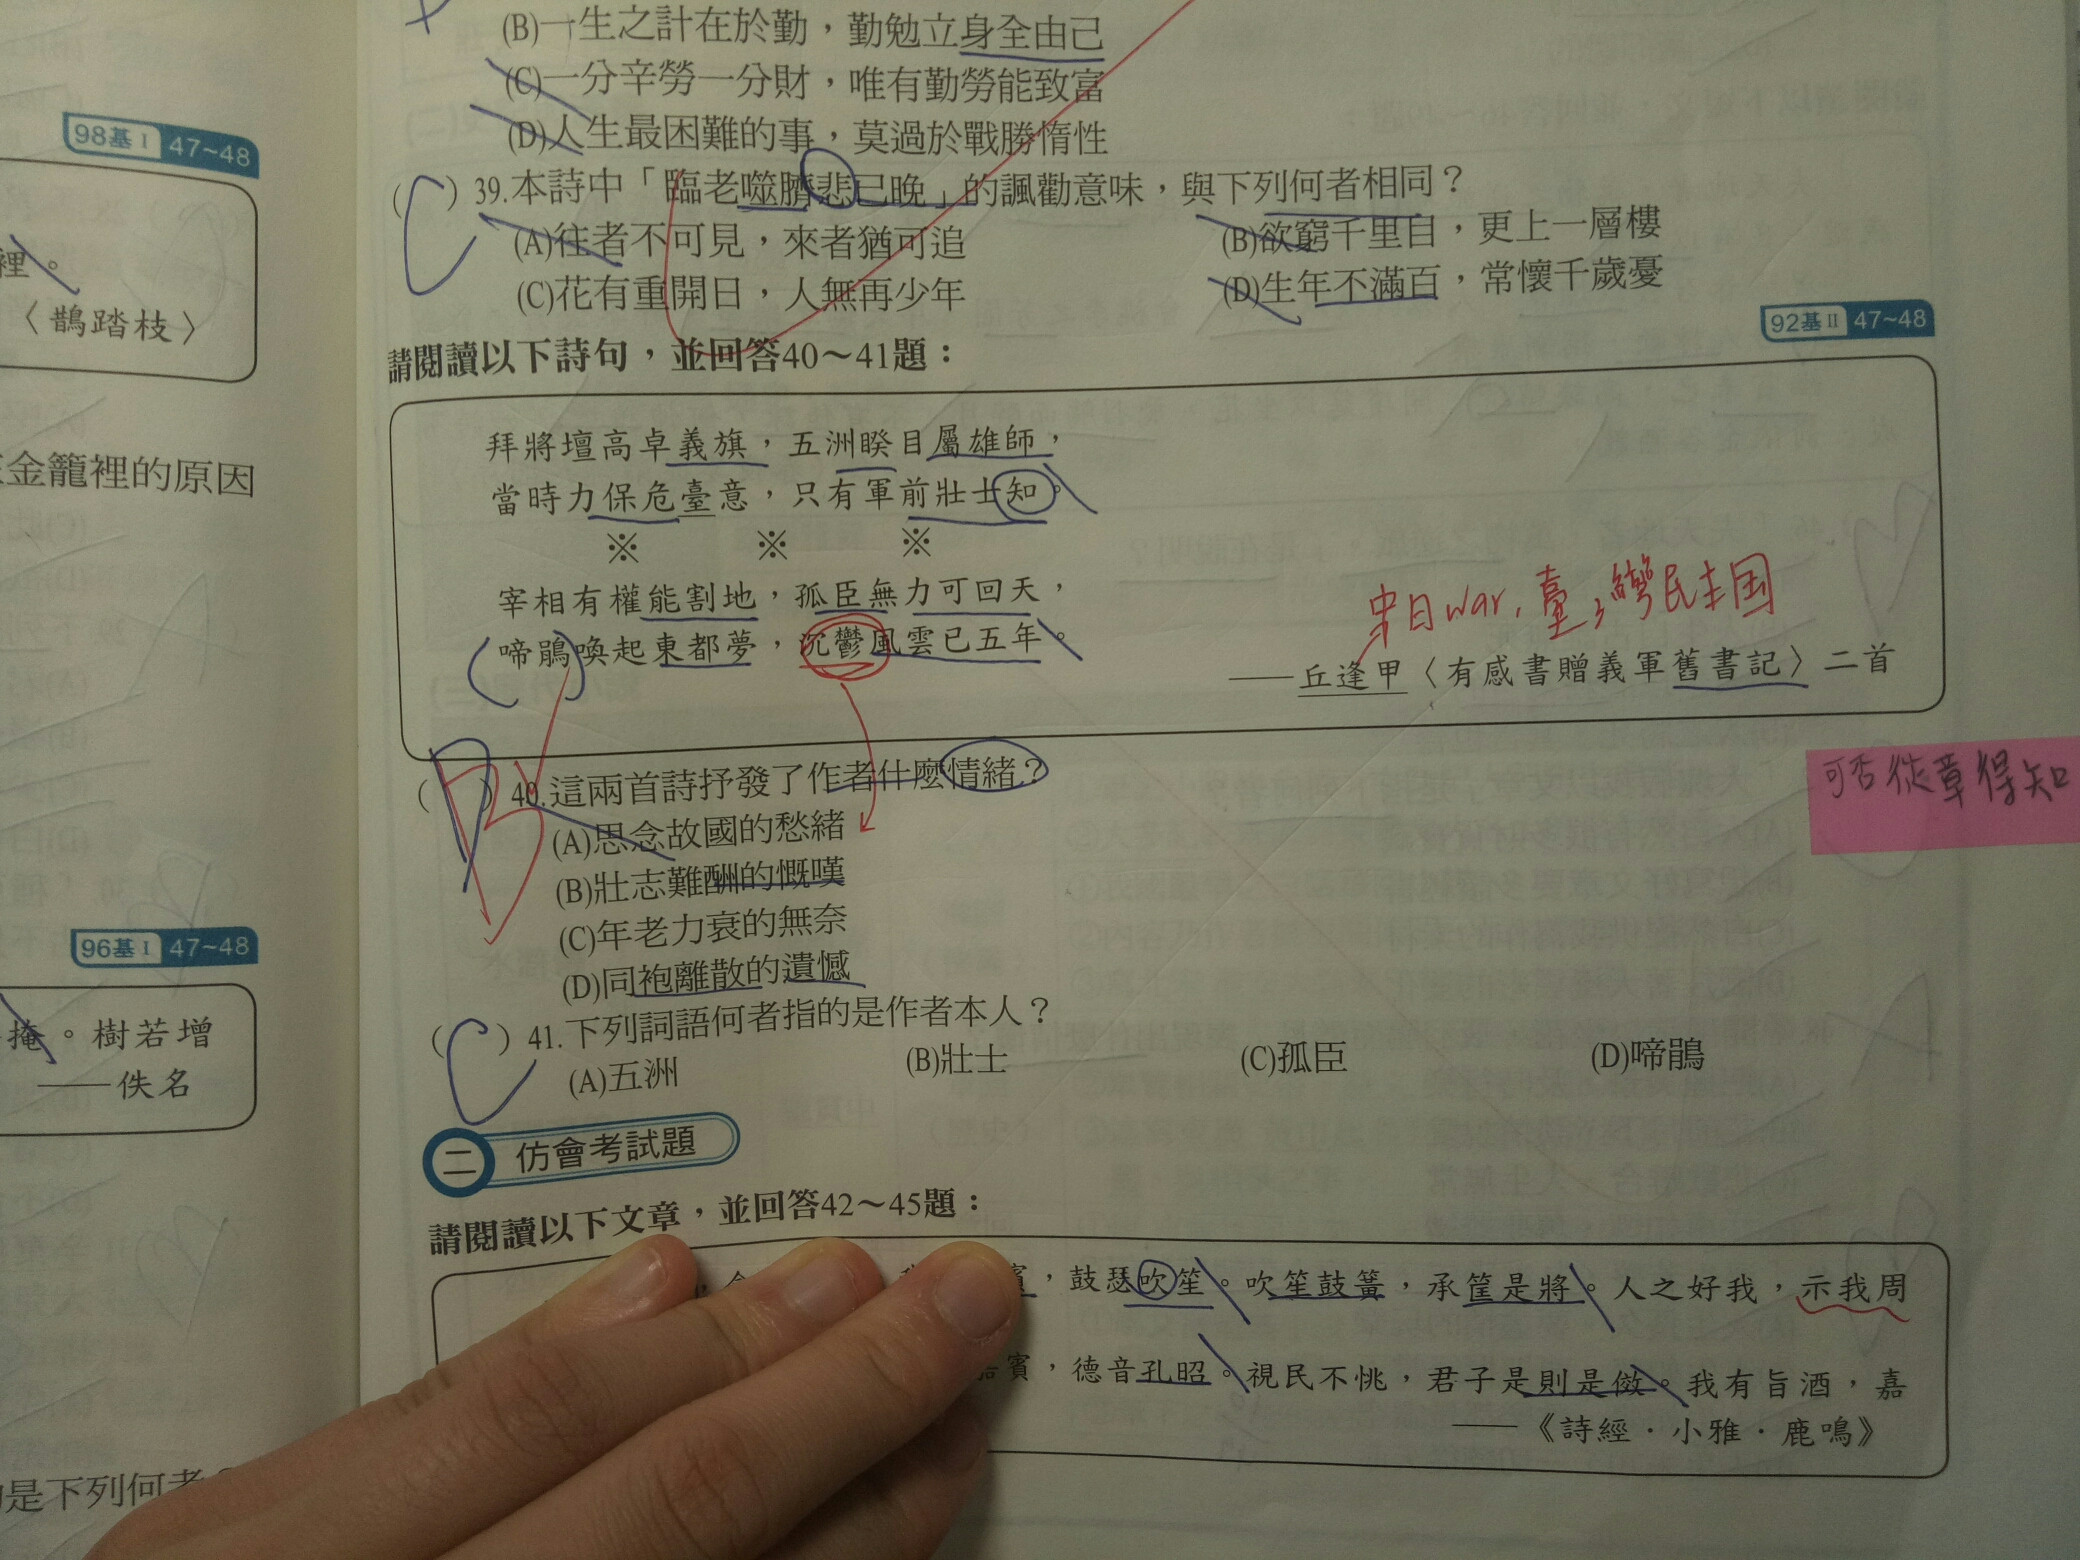 (B)一生之計在於勤，勤勉立身全由己
(C)一分辛勞一分財，唯有勤勞能致富
(D)人生最困難的事，莫過於戰勝惰性
98基Ⅰ 47~48
裡。
〈鵲踏枝〉
金籠裡的原因
96基Ⅰ 47~48
掩。樹若增
——佚名
是下列何者？
( C ) 39.本詩中「臨老噬臍悲已晚」的諷勸意味，與下列何者相同？
(A)往者不可見，來者猶可追
(B)欲窮千里目，更上一層樓
(C)花有重開日，人無再少年
(D)生年不滿百，常懷千歲憂
92基Ⅱ 47~48
請閱讀以下詩句，並回答40～41題：
拜將壇高卓義旗，五洲睽目屬雄師，
當時力保危臺意，只有軍前壯士知。
※ ※ ※
宰相有權能割地，孤臣無力可回天，
啼鵑喚起東都夢，沉鬱風雲已五年。
中日war，臺灣民主国
——丘逢甲〈有感書贈義軍舊書記〉二首
( B ) 40.這兩首詩抒發了作者什麼情緒？
(A)思念故國的愁緒
(B)壯志難酬的慨嘆
(C)年老力衰的無奈
(D)同袍離散的遺憾
可否從章得知
( C ) 41.下列詞語何者指的是作者本人？
(A)五洲 (B)壯士 (C)孤臣 (D)啼鵑
二 仿會考試題
請閱讀以下文章，並回答42～45題：
，鼓瑟吹笙。吹笙鼓簧，承筐是將。人之好我，示我周
賓，德音孔昭。視民不恌，君子是則是傚。我有旨酒，嘉
——《詩經．小雅．鹿鳴》